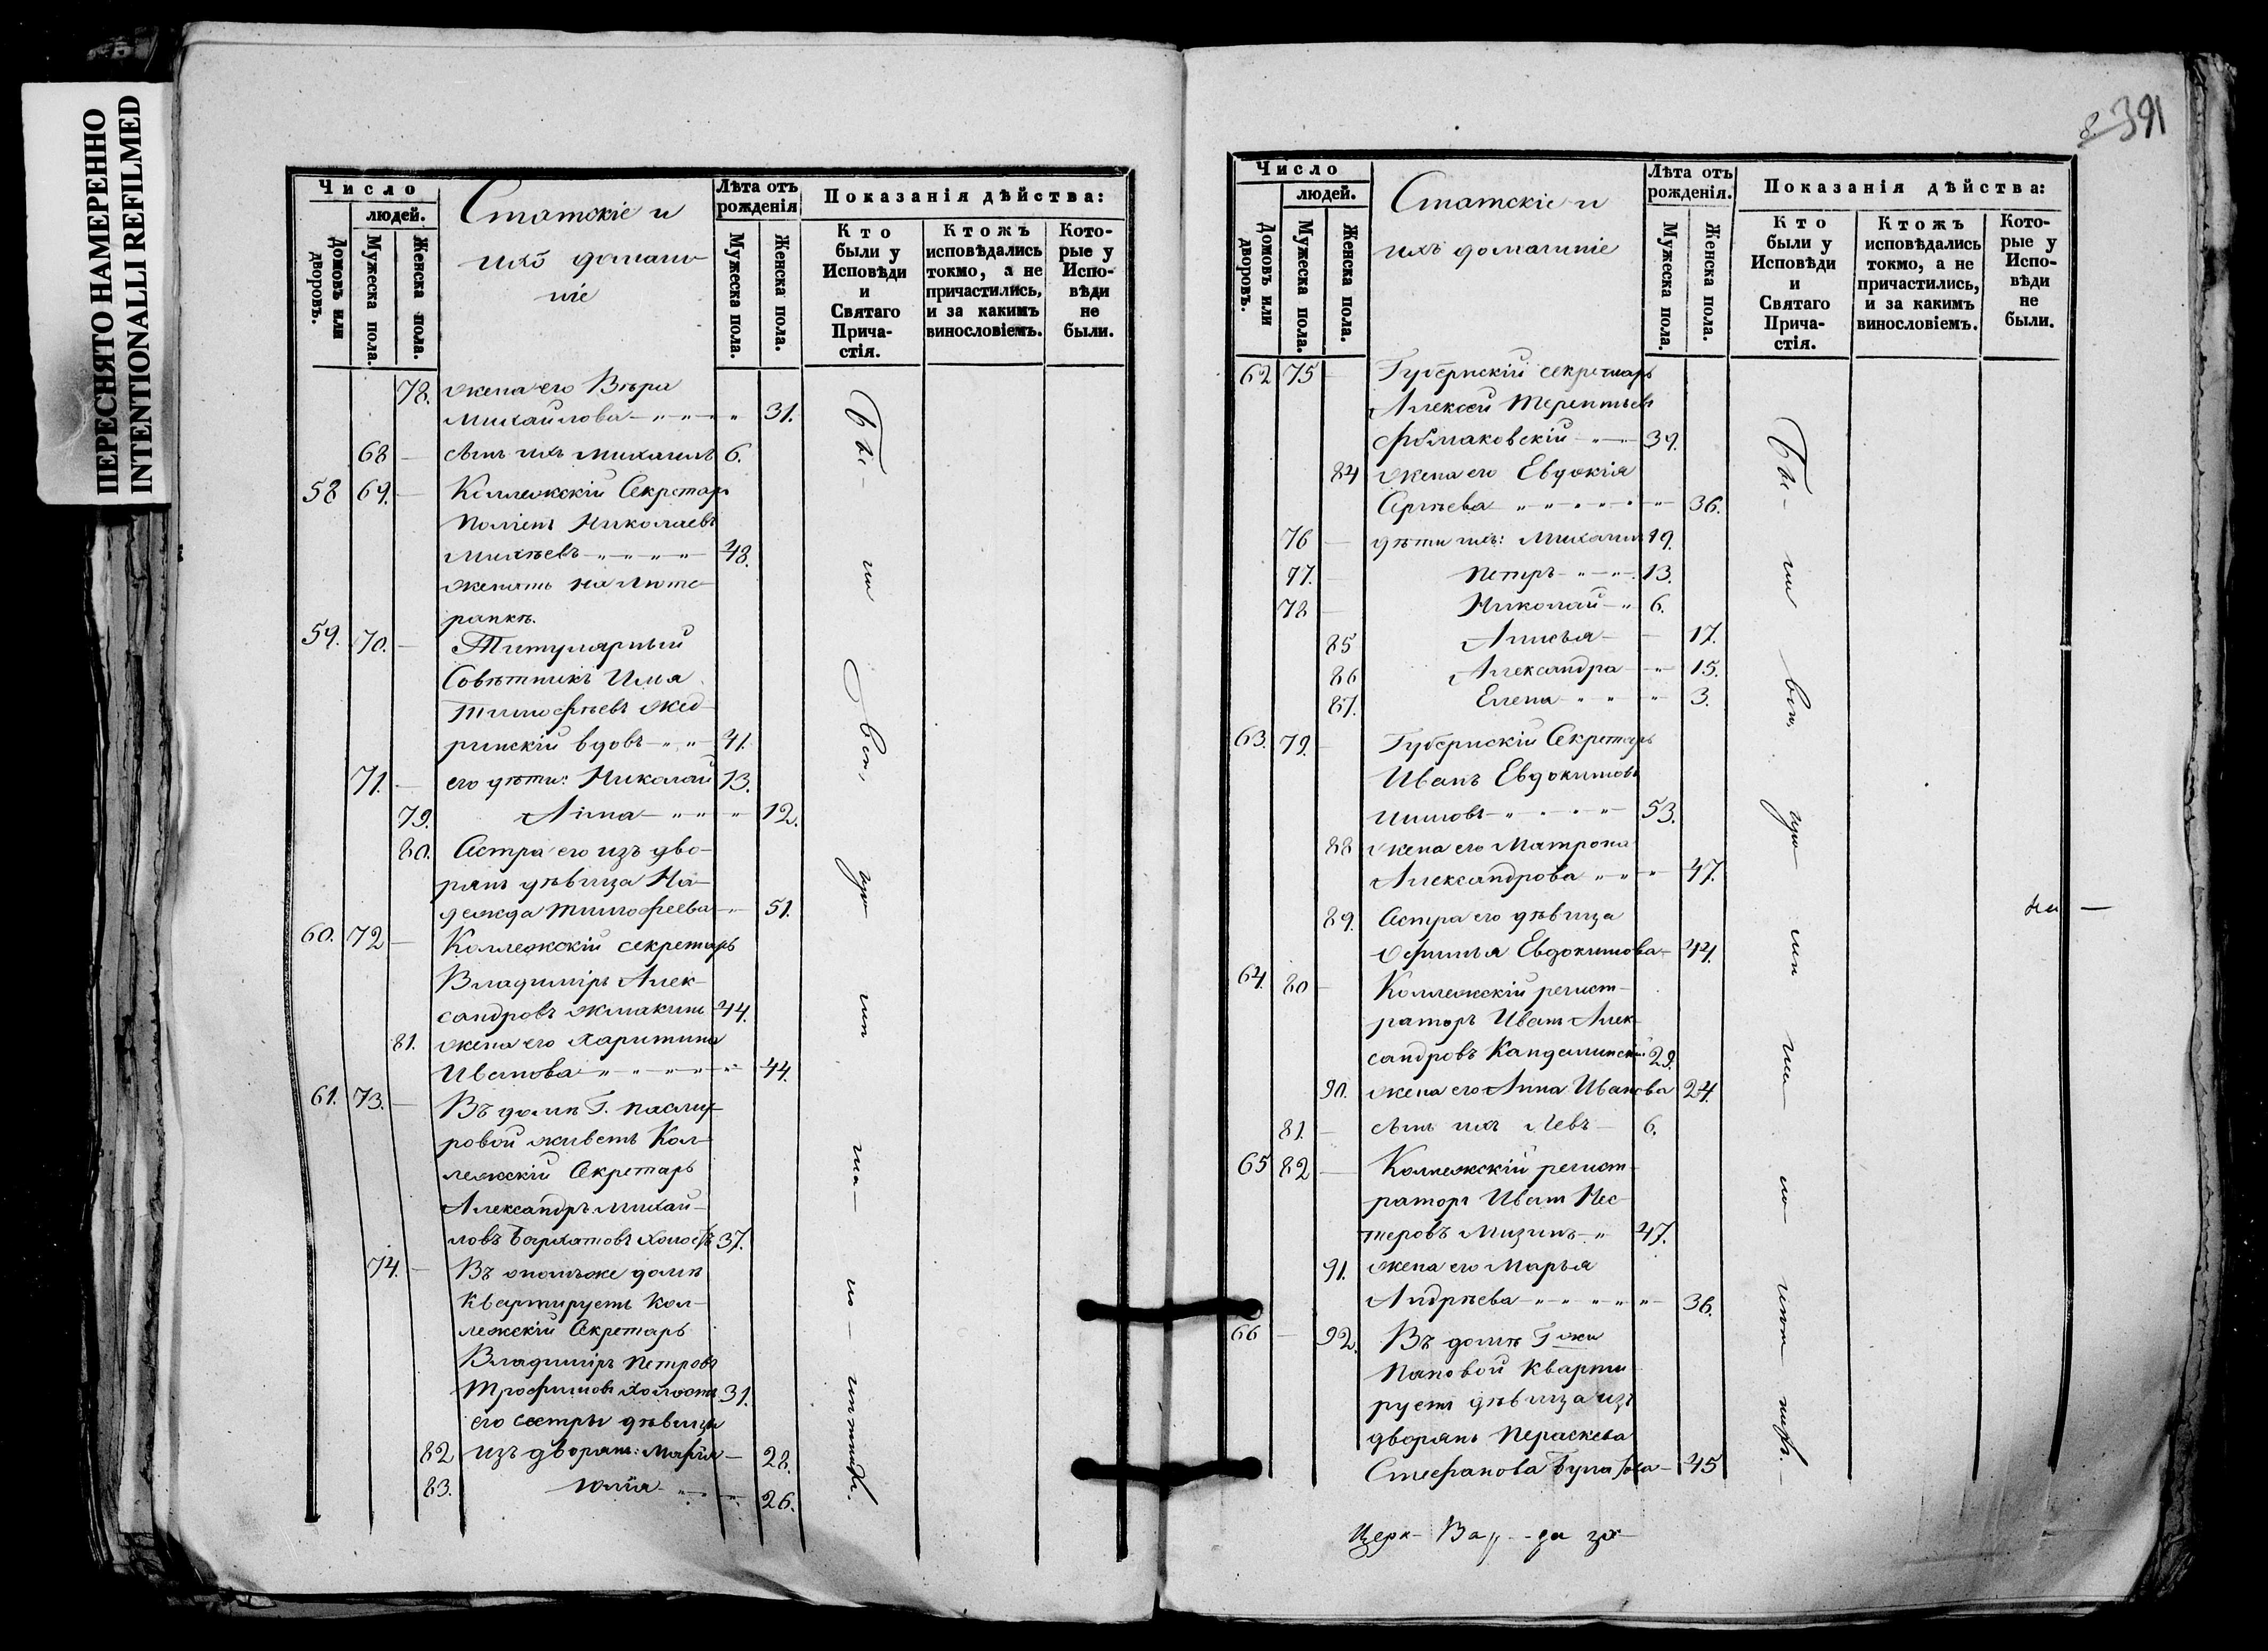 ПЕРЕСНЯТО НАМЕРЕННО
INTENTIONALLI REFILMED
Число
людей.
Домовъ или дворовъ.
Мужеска пола.
Женска пола.
Статскіе и
ихъ домашніе
Лѣта отъ рожденія
Мужеска пола.
Женска пола.
Показанія дѣйства:
Кто были у Исповѣди и Святаго Причастія.
Ктожъ исповѣдались токмо, а не причастились, и за какимъ винословіемъ.
Которые у Исповѣди не были.
78. жена его Вѣра
Михайлова 31.
68 — сынъ ихъ Михаилъ 6.
58 69. — Коллежскій Секретарь
Николаевъ
Михѣевъ 48.
женатъ на Люте-
ранкѣ.
59. 70. — Титулярный
Совѣтникъ Илья
Тимофѣевъ Жед-
ринскій вдовъ 41.
71. — его дѣти: Николай 13.
79. Анна 12.
80. Сестра его изъ дво-
рянъ дѣвица На-
дежда Тимофеева 51.
60. 72 — Коллежскій секретарь
Владиміръ Алек-
сандровъ Жмакинъ 44.
81. жена его Харитина
Иванова 44.
61. 73. — Въ домѣ Г.
ровой живетъ Кол-
лежскій Секретарь
Александръ Михай-
ловъ Бархатовъ холостъ 37.
74. — Въ ономъже домѣ
квартируетъ Кол-
лежскій Секретарь
Владиміръ Петровъ
Трофимовъ холостъ 31.
его сестры дѣвицы
82 изъ дворянъ: Марья — 28.
83. Юлія 26.
391
Число
людей.
Домовъ или дворовъ.
Мужеска пола.
Женска пола.
Статскіе и
ихъ домашніе
Лѣта отъ рожденія.
Мужеска пола.
Женска пола.
Показанія дѣйства:
Кто были у Исповѣди и Святаго Причастія.
Ктожъ исповѣдались токмо, а не причастились, и за какимъ винословіемъ.
Которые у Исповѣди не были.
62 75 — Губернскій секретарь
Алексѣй Терентьевъ
39.
84 жена его Евдокія
Сергѣева 36.
76 — дѣти ихъ: Михаилъ 19.
77. Петръ 13.
78 — Николай 6.
85 Анисья — 17.
86 Александра 15.
87. Елена 3.
63. 79. — Губернскій Секретарь
Иванъ Евдокимовъ
53.
88 жена его Матрона
Александрова 47.
89. Сестра его дѣвица
Евдокимова — 44.
64. 80 — Коллежскій регист-
раторъ Иванъ Алек-
сандровъ 29.
90. жена его Анна Иванова 24.
81. — сынъ ихъ Левъ — 6.
65 82 — Коллежскій регист-
раторъ Иванъ Нес-
теровъ Мизинъ 47.
91. жена его Марья
Андрѣева 36.
66 — 92. Въ домѣ Гжи
Пановой кварти-
руетъ дѣвица изъ
дворянъ Параскева
Стефанова 45